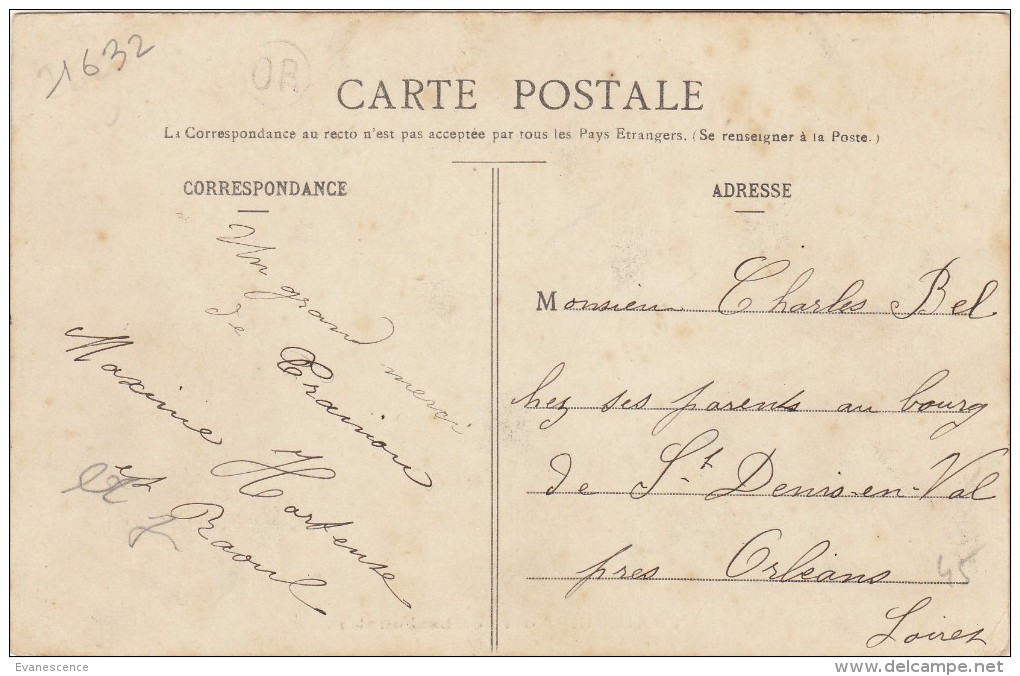 21632
OR
CARTE POSTALE
La Correspondance au recto n'est pas acceptée par tous les Pays Etrangers. (Se renseigner à la Poste.)
CORRESPONDANCE
Un grand merci
de Trainou
Maxime Hortense
et Raoul
ADRESSE
Monsieur Charles Bel
chez ses parents au bourg
de St Denis-en-Val
près Orléans
45
Loiret
Evanescence
www.delcampe.net